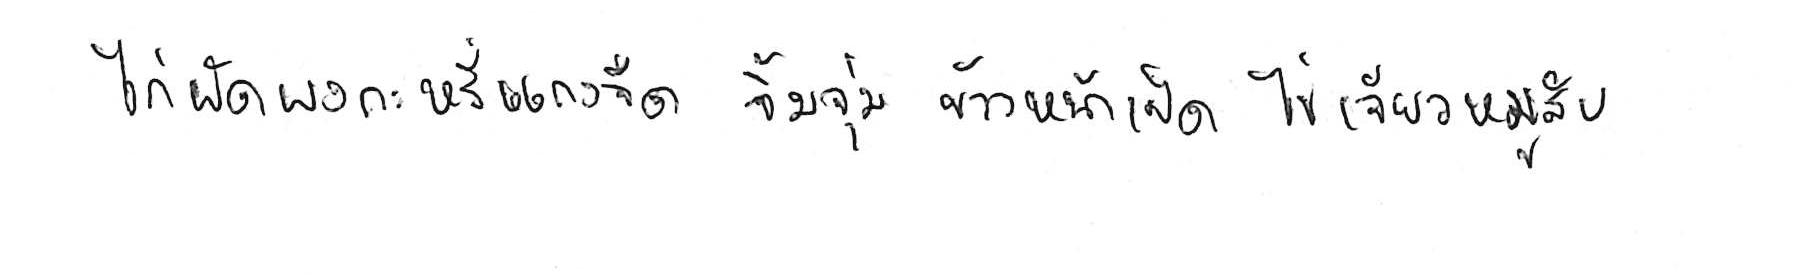 ไก่ผัดผงกะหรี่แกงจืด จิ้มจุ่ม ข้าวหน้าเป็ด ไข่เจียวหมูสับ